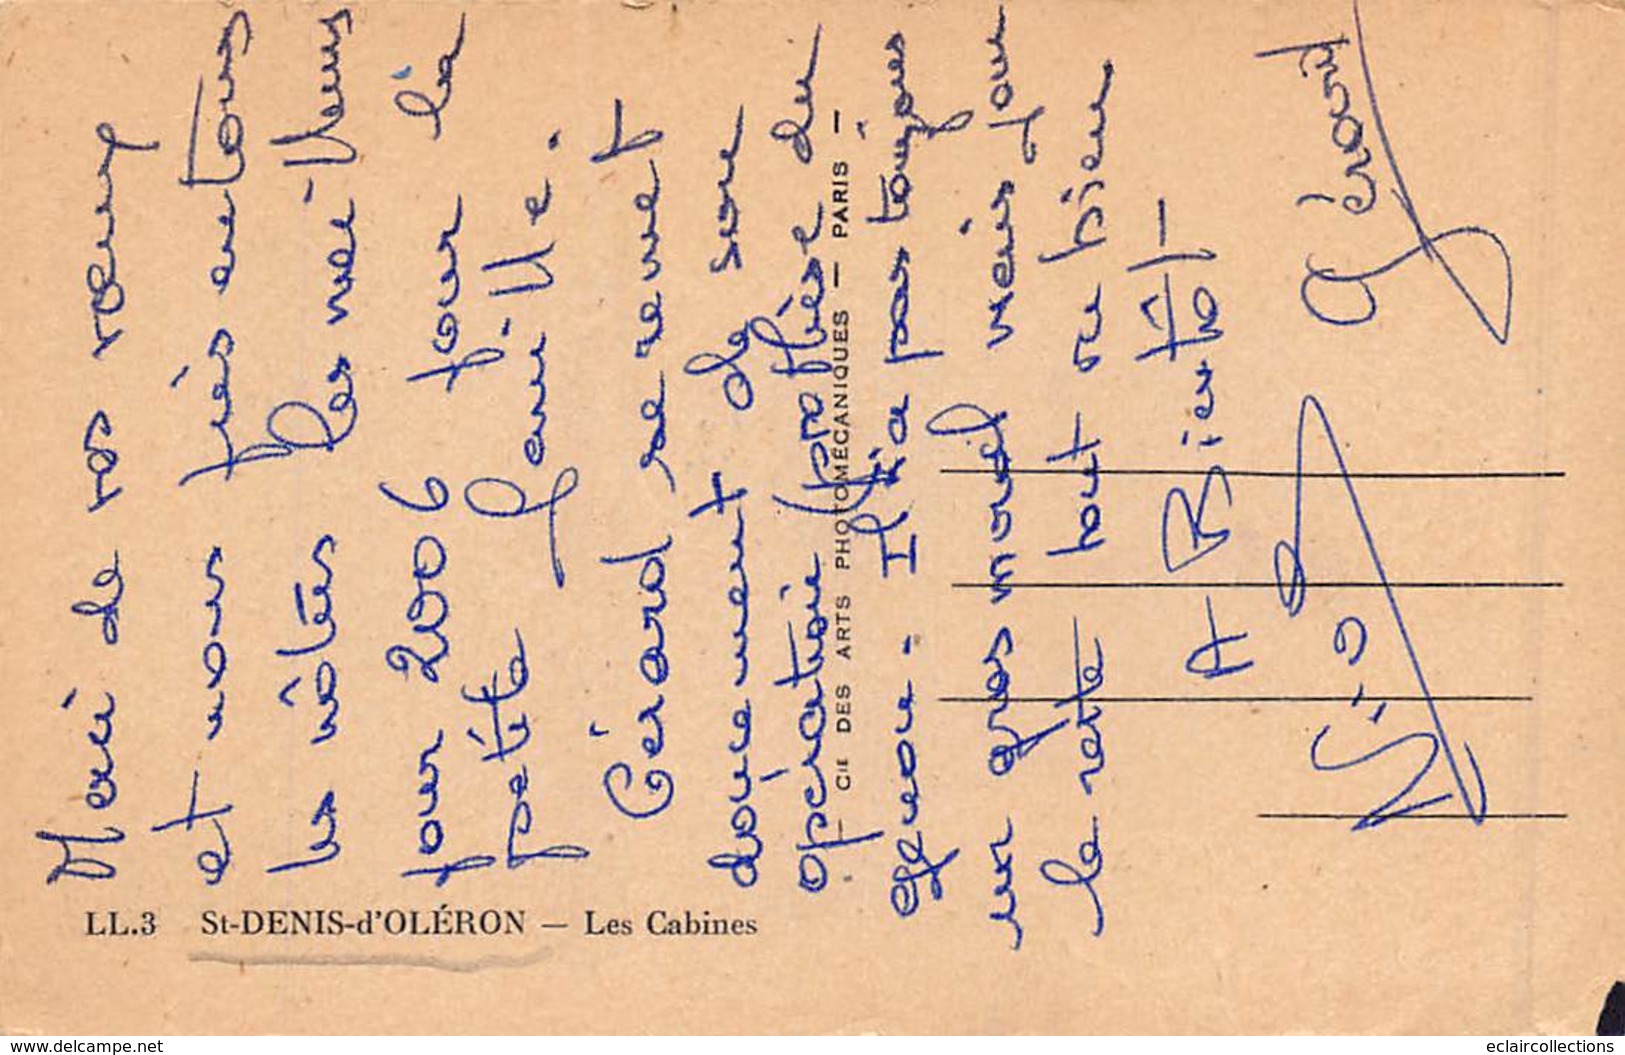 Merci de vos vœux
et vous très entours
les nôtres les meilleurs
pour 2006 pour la
petite famille.
Gérard se remet
doucement de son
opération (prothèse du
genou. Il n'a pas toujours
un gros moral mais pour
le reste tout va bien
A Bientôt -
Gérard
LL.3 St-DENIS-d'OLÉRON — Les Cabines
— Cie DES ARTS PHOTOMÉCANIQUES — PARIS —
www.delcampe.net
eclaircollections